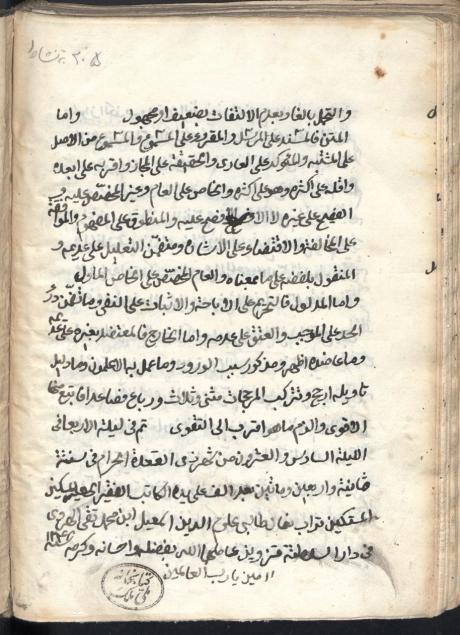 والتحمل بالغا وبعدم الالتفات بضعيف او مجهول واما
المتن فالمسند على المرسل والمقروء على المسموع والمسموع من الاصل
على المشتبه والمؤكد على العاري والحقيقة على المجاز واقربه على ابعده
واقله على اكثره وهو على اكثره والخاص على العام وغير المخصص عليه و
الفصيح على غيره لا الافصح عليه والمنطوق على المفهوم والموافقة
على المخالفة والاقتضاء على الاشارة ومتضمن التعليل على عديمه و
المنقول بلفظه على ما بمعناه والعام المخصص على الخاص المأول
واما المدلول فالتحريم على الاباحة والاثبات على النفي وما تضمن درء
الحد على الموجب والعتق على عدمه واما الخارج فالمعتضد بغيره على عديمه
وما عاضده اظهر ومذكور سبب الورود وما عمل به الاعلمون وما دليل
تاويله ارجح وتتركب المرجحات مثنى وثلاث ورباع فصاعدا فاتبع منها
الاقوى والزم ما هو اقرب الى التقوى تم في ليلة الاربعاء في
الليلة السادس والعشرون من شهر ذي القعدة الحرام في سنة
ثمانية واربعين ومائتين بعد الف على يد الكاتب الفقير الحقير المسكين
المستكين تراب نعال طالبي علوم الدين ابن محمد تقي
في دار السلطنة قزوين عاملهما الله بفضله واحسانه وكرمه
امين يا رب العالمين
كتابخانه
ملى ملك